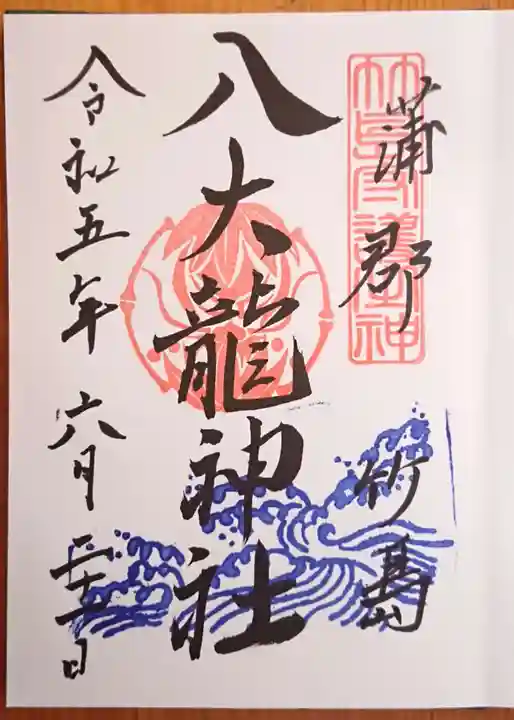 蒲郡 竹島
八大龍神社
令和五年六月二十二日